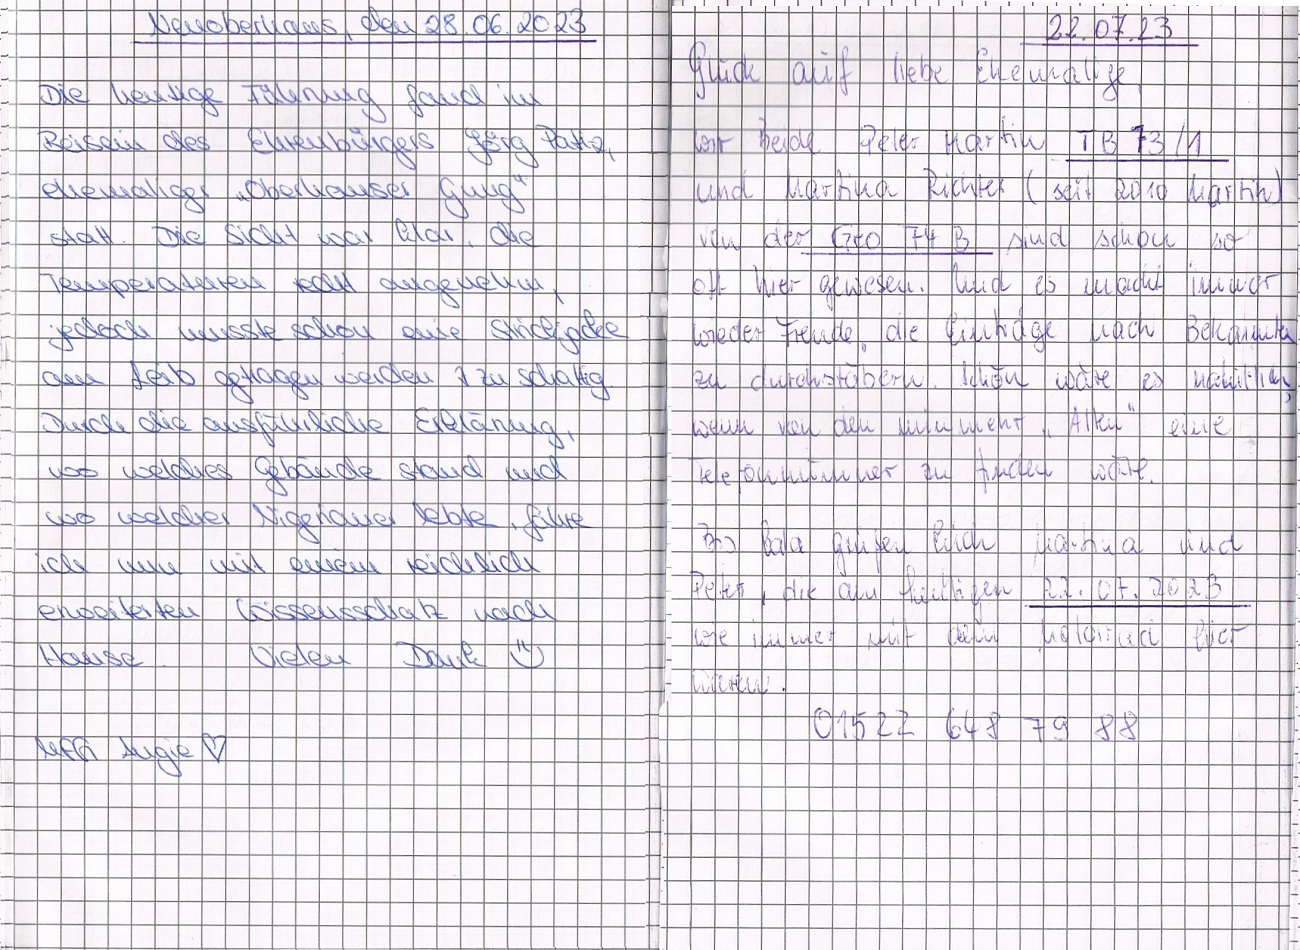 Neuoberhaus, den 28.06.2023
Die heutige Führung fand im
Beisein des Ehrenbürgers Jörg
ehemaliger „Oberhauser Gung"
statt. Die Sicht war klar, die
Temperaturen echt angenehm,
jedoch musste schon eine Strickjacke
am Leib getragen werden zu schattig
Durch die ausführliche Erklärung,
wo welches Gebäude stand und
wo welcher lebte, fahre
ich nun mit einem reichlich
erweiterten Wissensschatz nach
Hause. Vielen Dank
Angie ♡
22.07.23
Glück auf liebe Ehemalige,
wir Beide Peter Martin TB 73/1
und Martina Richter (seit 2010 Martin)
von der Geo 74 B sind schon so
oft hier gewesen. Und es macht immer
wieder Freude, die Einträge nach Bekannten
zu durchstöbern. Schön wäre es natürlich,
wenn von den nunmehr „Alten" eine
Telefonnummer zu finden wäre.
Bis bald grüßen Euch Martina und
Peter, die am heutigen 22.07.2023
wie immer mit dem Motorrad hier
waren.
01522 648 79 88